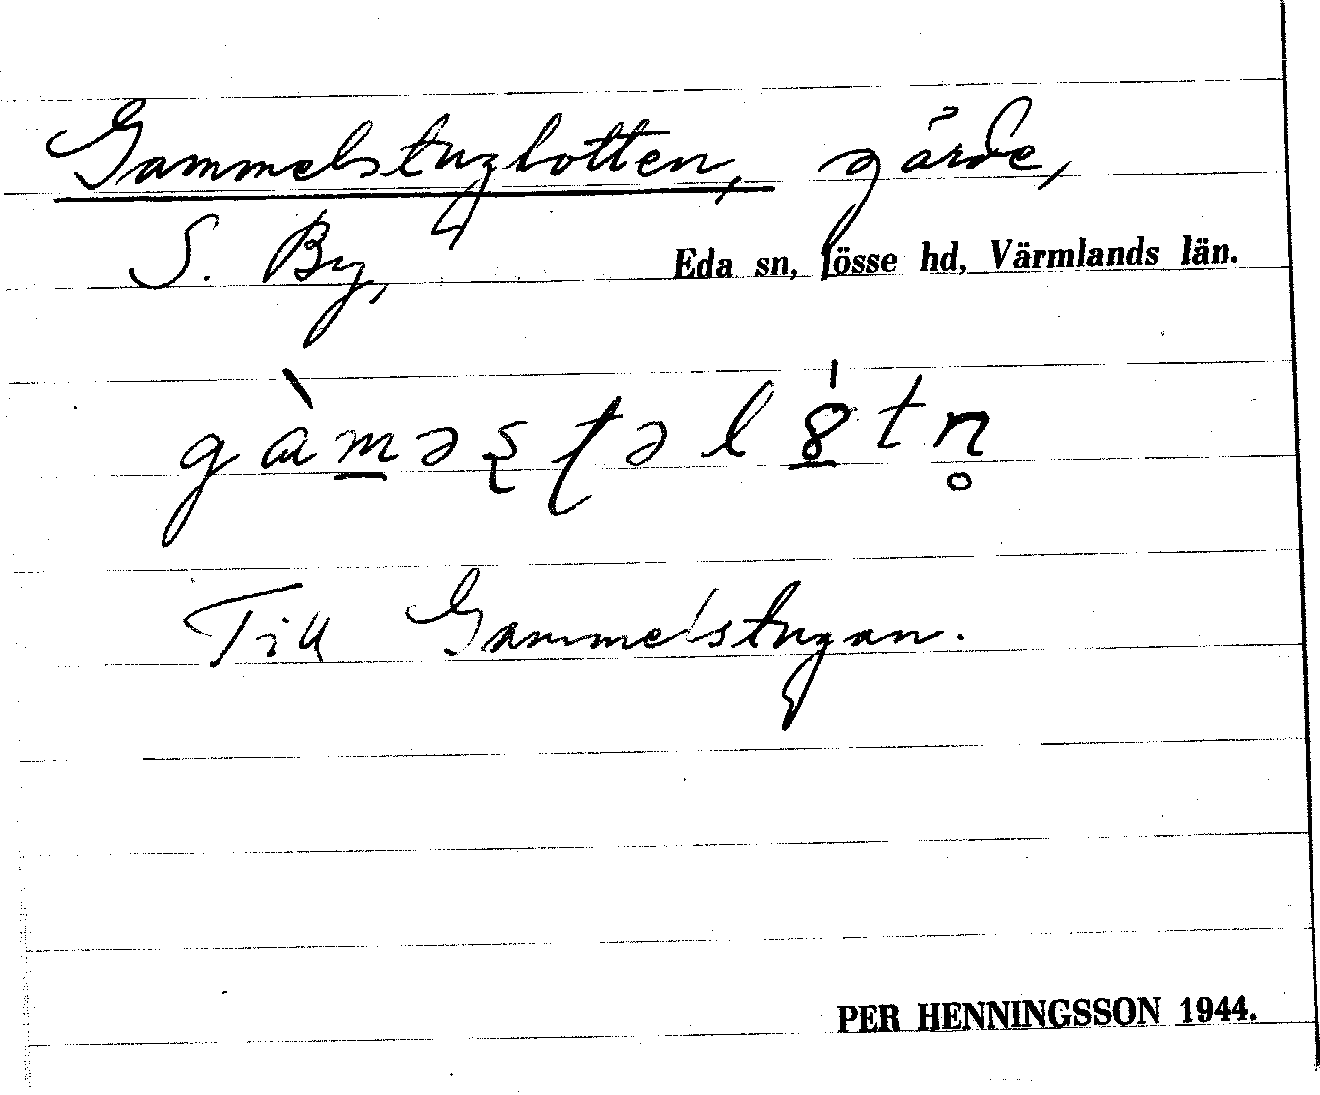 Gammelstuglotten, gärde,
S. By, Eda sn, Jösse hd, Värmlands län.
gàməʂʈəl8̍tn̥
Till Gammelstugan.
PER HENNINGSSON 1944.